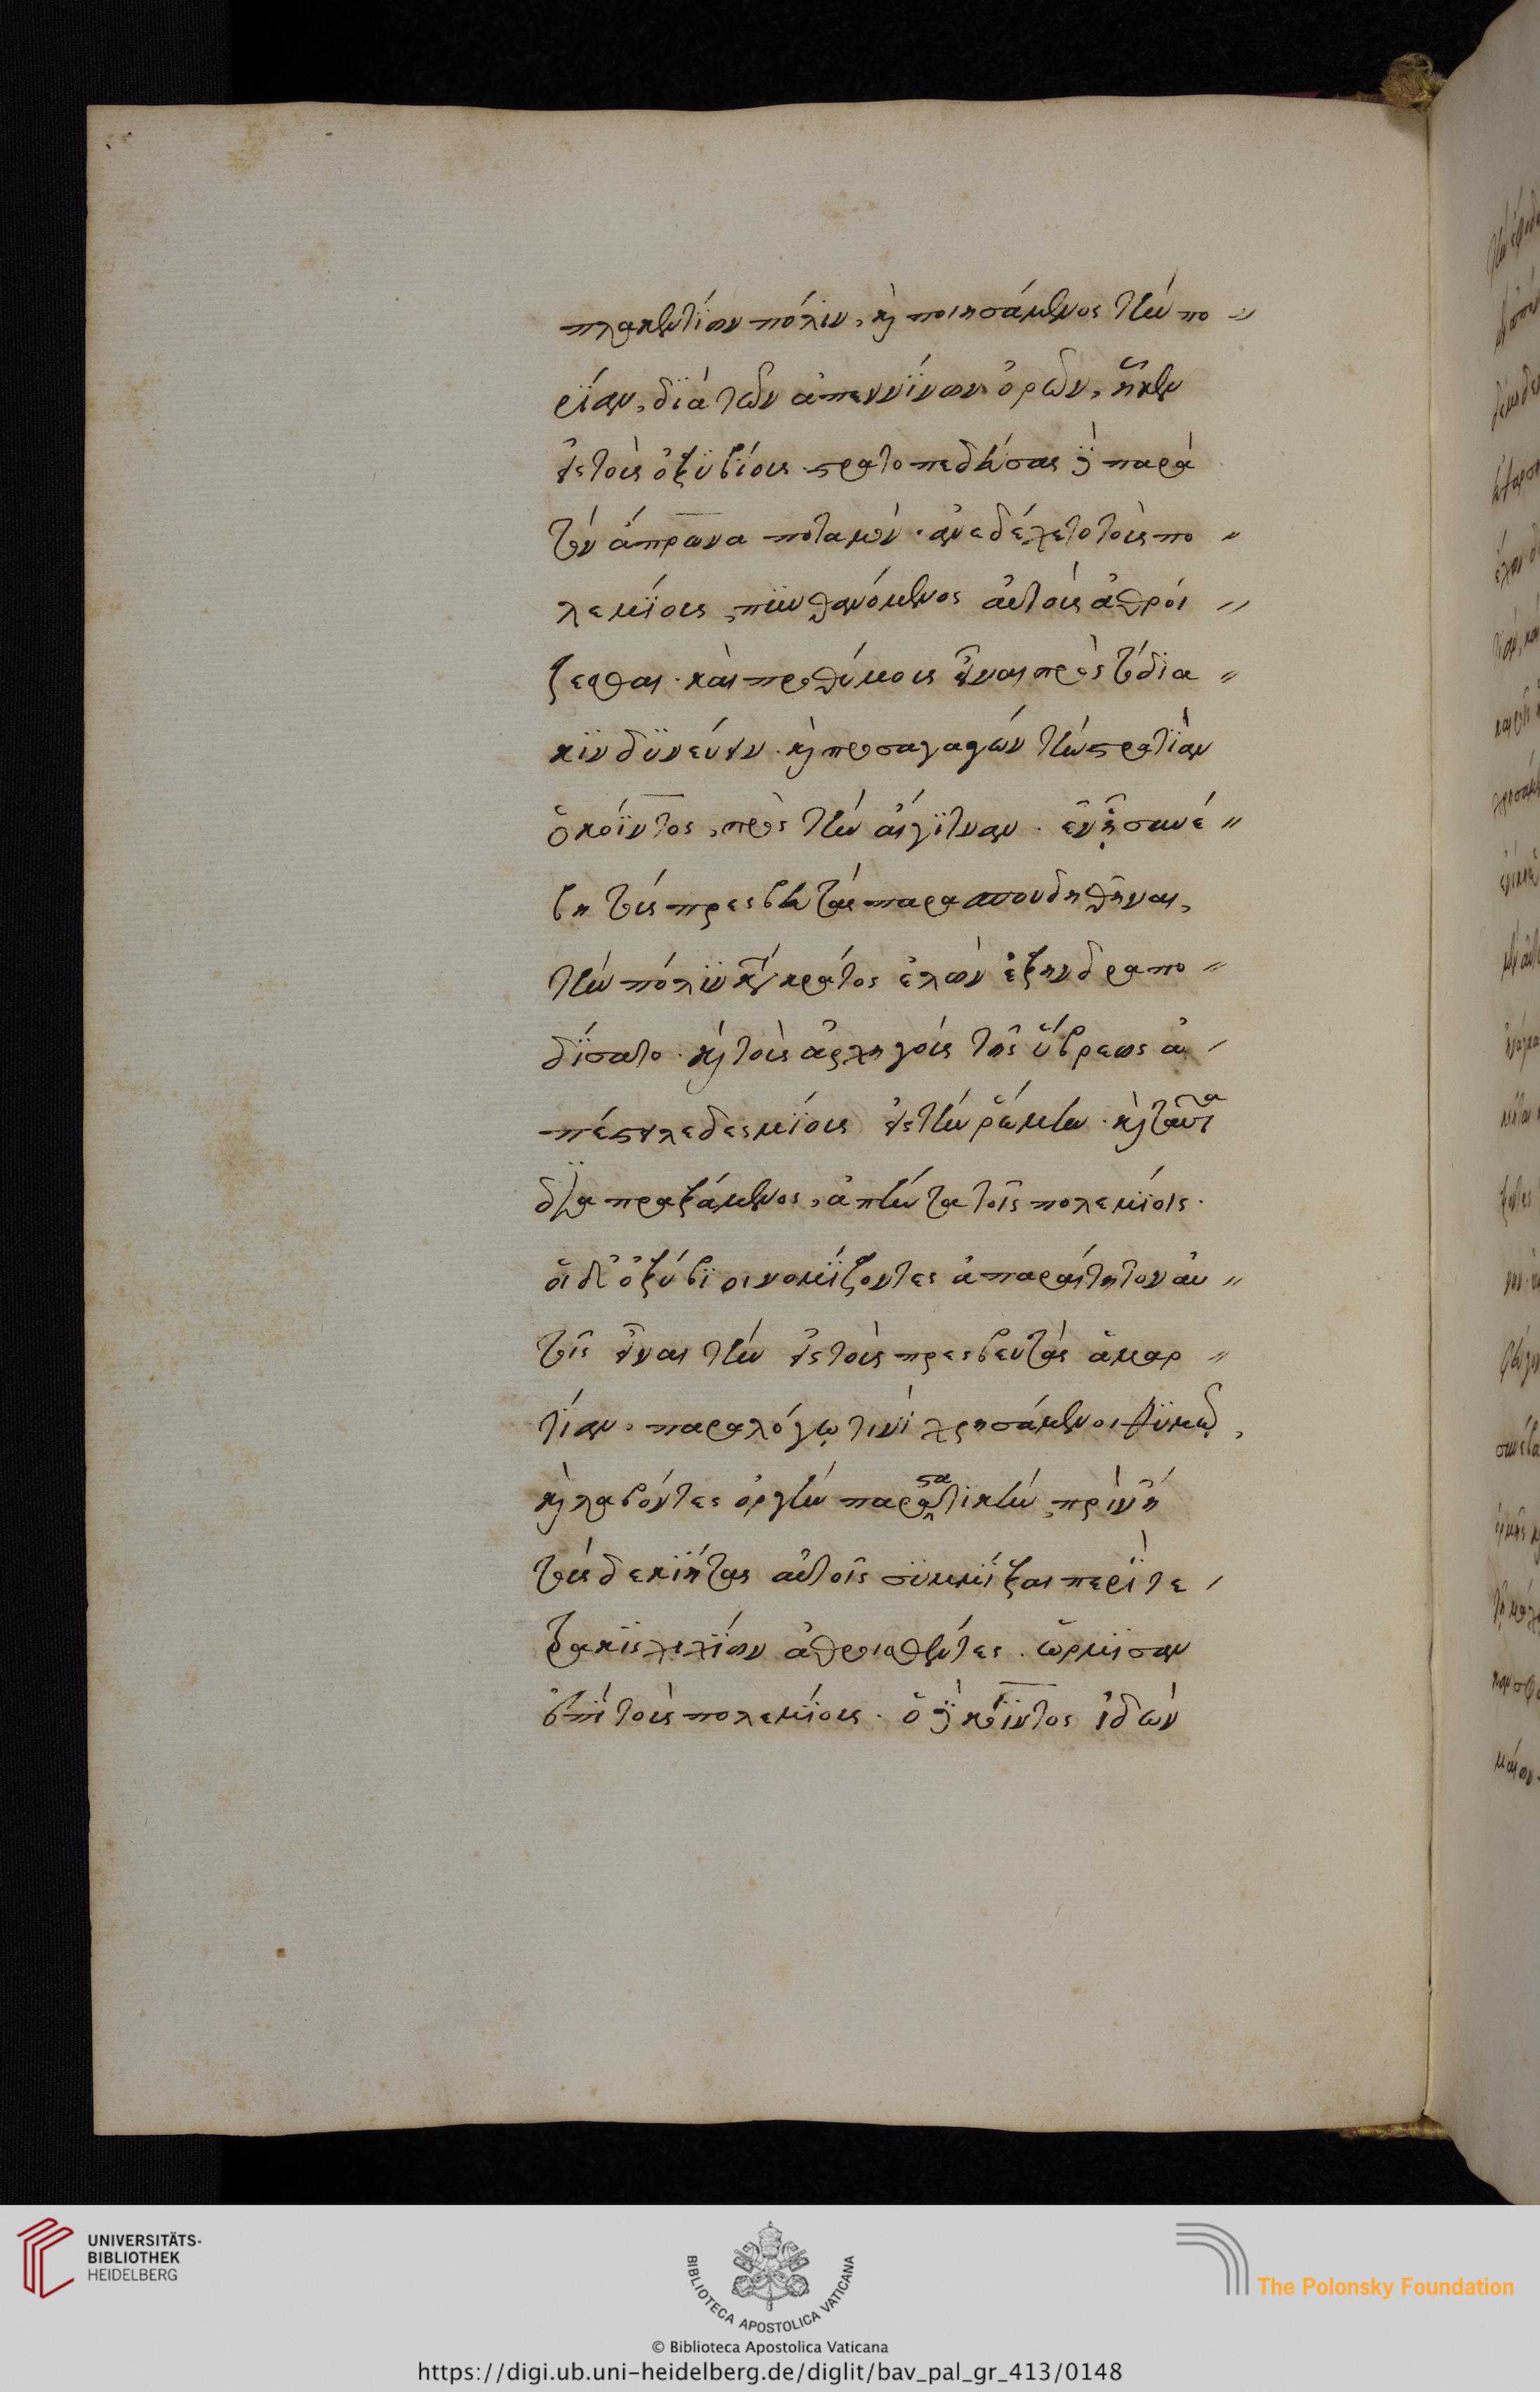 πλακεντίων πόλιν, καὶ ποιησάμενος τὴν πο〃
ρείαν, διὰ τῶν ἀπεννίνων ὀρῶν, ἧκεν
εἰς τοὺς ὀξυβίους. στρατοπεδεύσας δὲ παρὰ
τὸν ἄπρωνα ποταμὸν. ἀνεδέχετο τοὺς πο〃
λεμίους, πυνθανόμενος αὐτοὺς ἁθροί〃
ζεσθαι. καὶ προθύμους εἶναι πρὸς τὸ δια〃
κινδυνεύειν. καὶ προσαγαγὼν τὴν στρατιὰν
ὁ κόϊντος, πρὸς τὴν αἴγιτναν. ἐν ᾗ συνέ〃
βη τοὺς πρεσβευτὰς παρασπονδηθῆναι,
τὴν πόλιν κατὰ κράτος ἑλὼν ἐξηνδραπο〃
δίσατο. καὶ τοὺς ἀρχηγοὺς τῆς ὕβρεως ἀ
πέστειλε δεσμίους εἰς τὴν ῥώμην. καὶ ταῦτα
διαπραξάμενος, ἀπήντα τοῖς πολεμίοις.
οἱ δ' ὀξύβιοι νομίζοντες ἀπαραίτητον αὐ〃
τοῖς εἶναι τὴν εἰς τοὺς πρεσβευτὰς ἁμαρ〃
τίαν. παραλόγῳ τινὶ χρησάμενοι θυμῷ,
καὶ λαβόντες ὁρμὴν παραστατικὴν, πρὶν ἢ
τοὺς δεκιήτας αὐτοῖς συμμίξαι περὶ τε
τρακισχιλίων ἁθροισθέντες. ὥρμησαν
ἐπὶ τοὺς πολεμίους. ὁ δὲ κόϊντος ἰδὼν
UNIVERSITÄTS-
BIBLIOTHEK
HEIDELBERG
BIBLIOTECA APOSTOLICA VATICANA
The Polonsky Foundation
© Biblioteca Apostolica Vaticana
https://digi.ub.uni-heidelberg.de/diglit/bav_pal_gr_413/0148